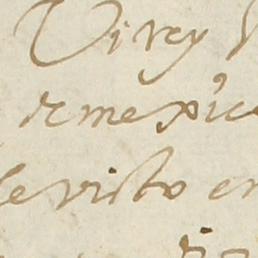 Virrey
de mexico
le visto en